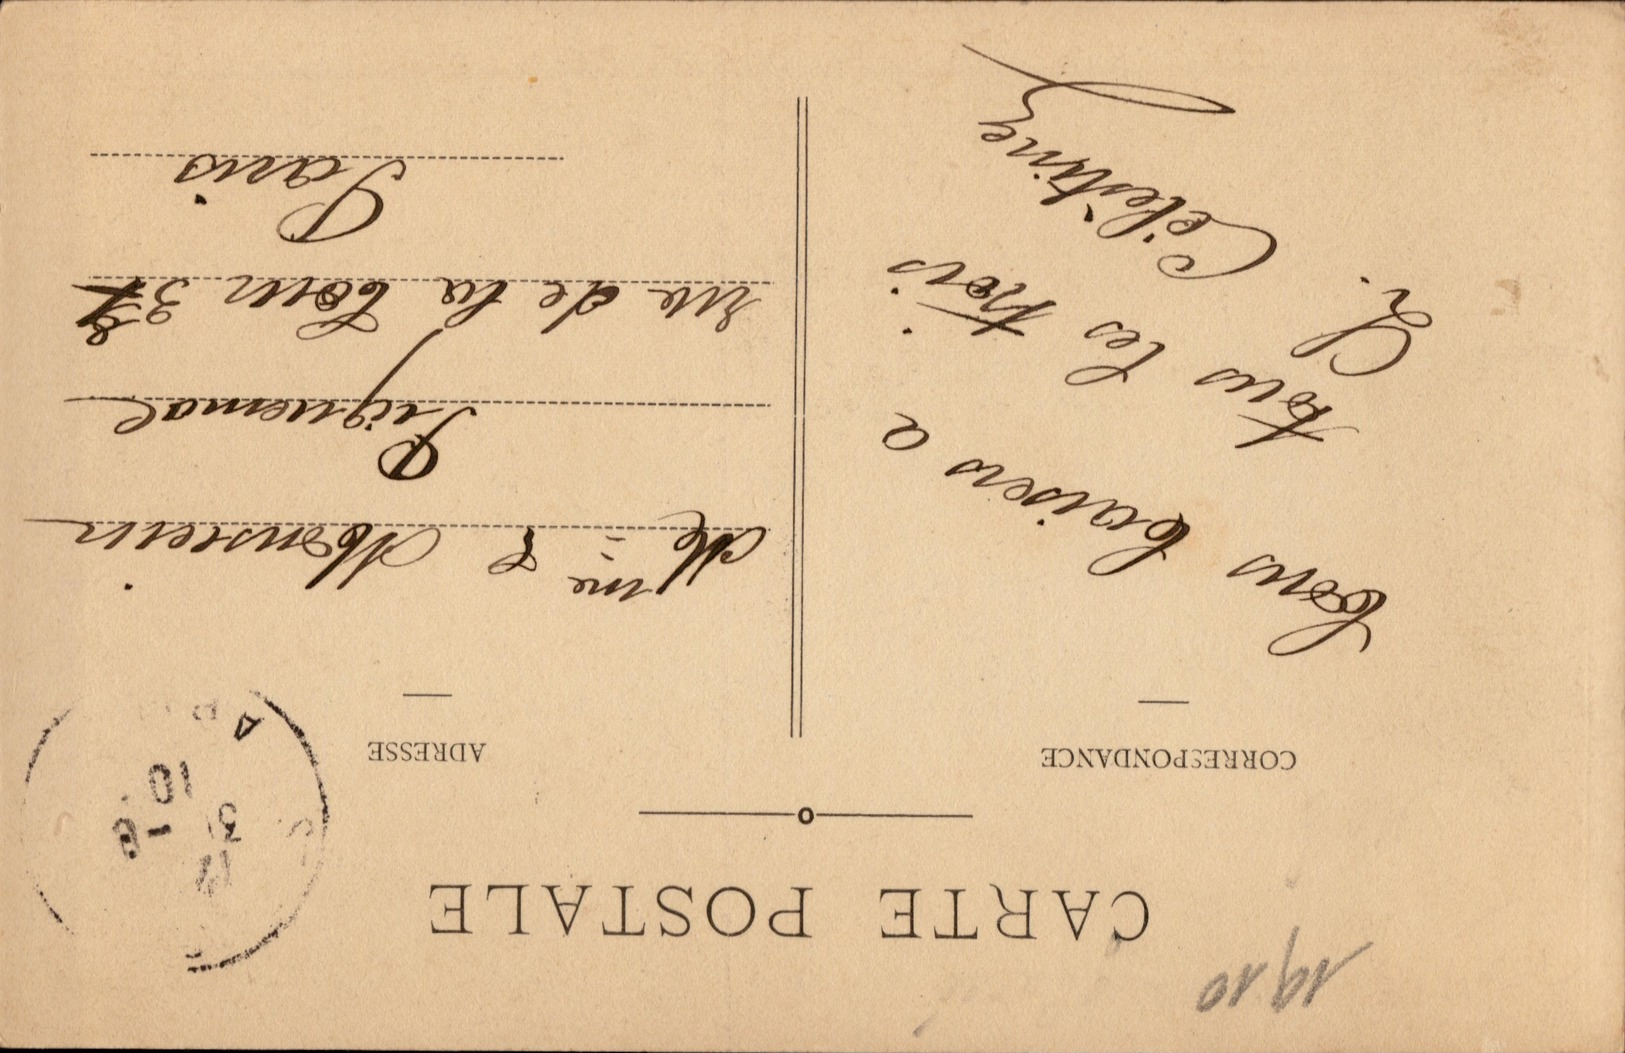 1910
CARTE POSTALE
CORRESPONDANCE
ADRESSE
bons baisers a
tous les trois
L. Célestine
Mme & Monsieur
Piquemal
rue de la Tour
Paris